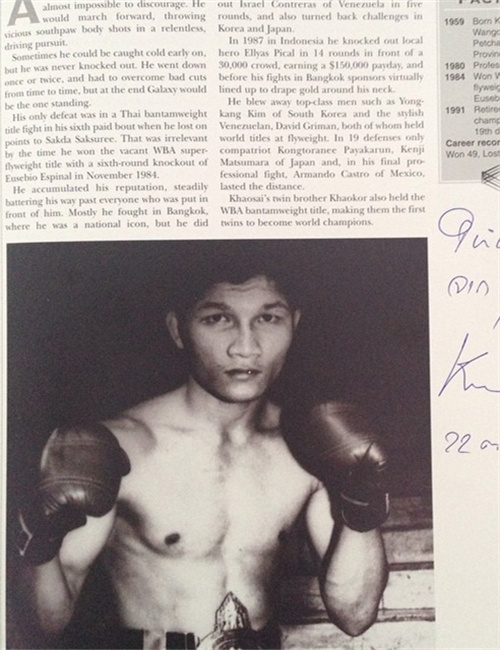 A almost impossible to discourage. He
would march forward, throwing
vicious southpaw body shots in a relentless,
driving pursuit.
Sometimes he could be caught cold early on,
but he was never knocked out. He went down
once or twice, and had to overcome bad cuts
from time to time, but at the end Galaxy would
be the one standing.
His only defeat was in a Thai bantamweight
title fight in his sixth paid bout when he lost on
points to Sakda Saksuree. That was irrelevant
by the time he won the vacant WBA super-
flyweight title with a sixth-round knockout of
Eusebio Espinal in November 1984.
He accumulated his reputation, steadily
battering his way past everyone who was put in
front of him. Mostly he fought in Bangkok,
where he was a national icon, but he did
out Israel Contreras of Venezuela in five
rounds, and also turned back challenges in
Korea and Japan.
In 1987 in Indonesia he knocked out local
hero Ellyas Pical in 14 rounds in front of a
30,000 crowd, earning a $150,000 payday, and
before his fights in Bangkok sponsors virtually
lined up to drape gold around his neck.
He blew away top-class men such as Yong-
kang Kim of South Korea and the stylish
Venezuelan, David Griman, both of whom held
world titles at flyweight. In 19 defenses only
compatriot Kongtoranee Payakarun, Kenji
Matsumara of Japan and, in his final pro-
fessional fight, Armando Castro of Mexico,
lasted the distance.
Khaosai's twin brother Khaokor also held the
WBA bantamweight title, making them the first
twins to become world champions.
1959 Born
Petcha
Provin
1980 Profes
1984 Won
flyweig
Euseb
1991 Retire
champ
19th
Career recor
Won 49, Lost
22